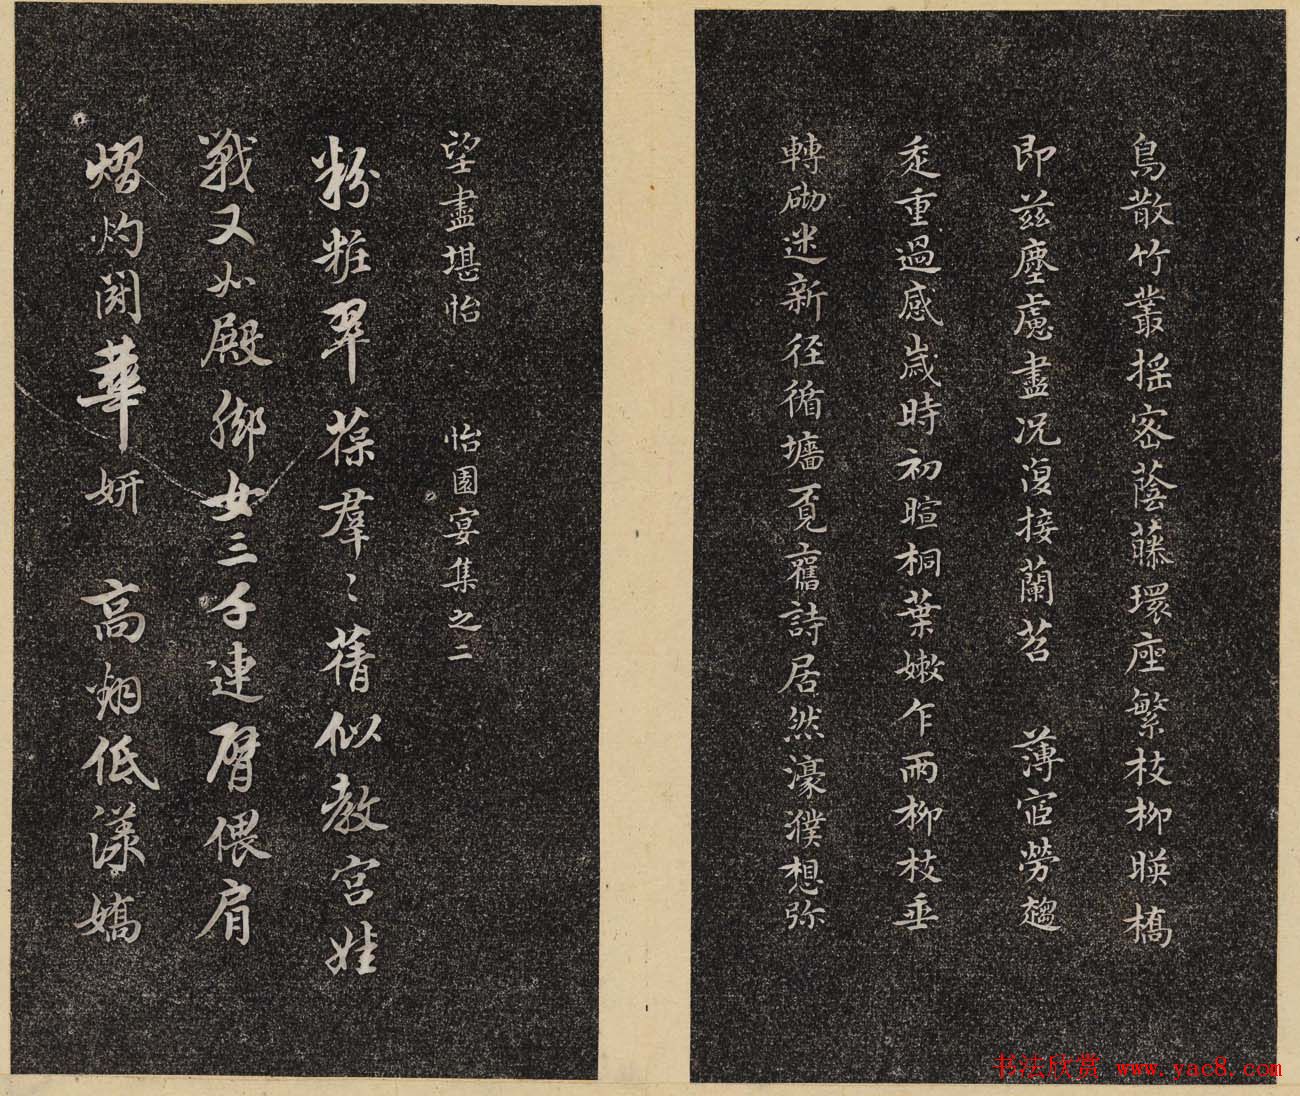 鳥散竹叢搖密蔭藤環座繁枝柳暎橋
即茲塵慮盡況復接蘭苕　薄宦勞趨
走重過感歲時初暄桐葉嫩乍雨柳枝垂
轉砌迷新徑循墻覓舊詩居然濠濮想弥
望盡堪怡　怡園宴集之二
粉粧翠葆羣〻蒨似教宮娃
戰又如殿腳女三千連臂偎肩
熠灼閗華妍　高翔低漾嬌
书法欣赏 www.yac8.com